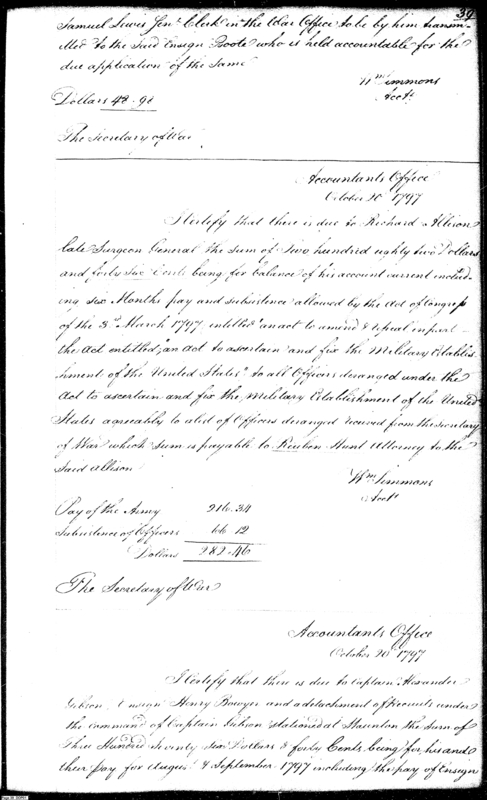 39
Samuel Lewis Senr. Clerk in the War Office to be by him transmi-
tted to the said Ensign Boote who is held accountable for the
due application of the Same
Wm Simmons
Acct.
Dollars 48.98
The Secretary of War
Accountants Office
October 20th 1797
I Certify that there is due to Richard Allison
late Surgeon General the Sum of Two hundred eighty two Dollars
and forty Six Cents being for balance of his account current includ-
ing Six Months pay and Subsistence allowed by the Act of Congress
of the 3rd March 1797 entitled "an act to amend & repeal in part
the Act entitled "an Act to ascertain and fix the Military Establis-
hment of the United States" to all Officers deranged under the
Act to ascertain and fix the Military Establishment of the United
States agreeably to a list of Officers deranged received from the Secretary
of War which Sum is payable to Reuben Hunt Attorney to the
Said Allison
Wm Simmons
Acct.
Pay of the Army 216.34
Subsistence of Officers 66.12
Dollars 282.46
The Secretary of War
Accountants Office
October 20th 1797
I Certify that there is due to Captain Alexander
Gibson, Ensign Henry Bowyer and a detachment of Recruits under
the command of Captain Gibson stationed at Staunton the Sum of
Three Hundred Seventy Six Dollars & forty Cents being for his and
their Pay for August & September 1797 including the pay of Ensign